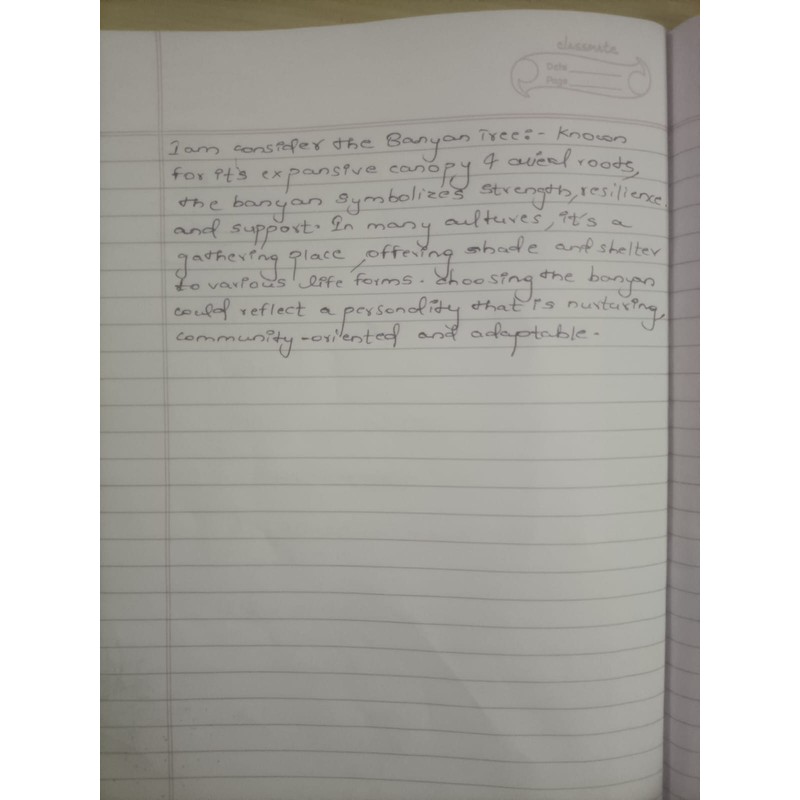 classmate
Date
Page
I am consider the Banyan Tree:- Known
for it's expansive canopy & aireal roots,
the banyan symbolizes strength, resilience,
and support. In many cultures, it's a
gathering place, offering shade and shelter
to various life forms. choosing the banyan
could reflect a personality that is nurturing,
community-oriented and adaptable.